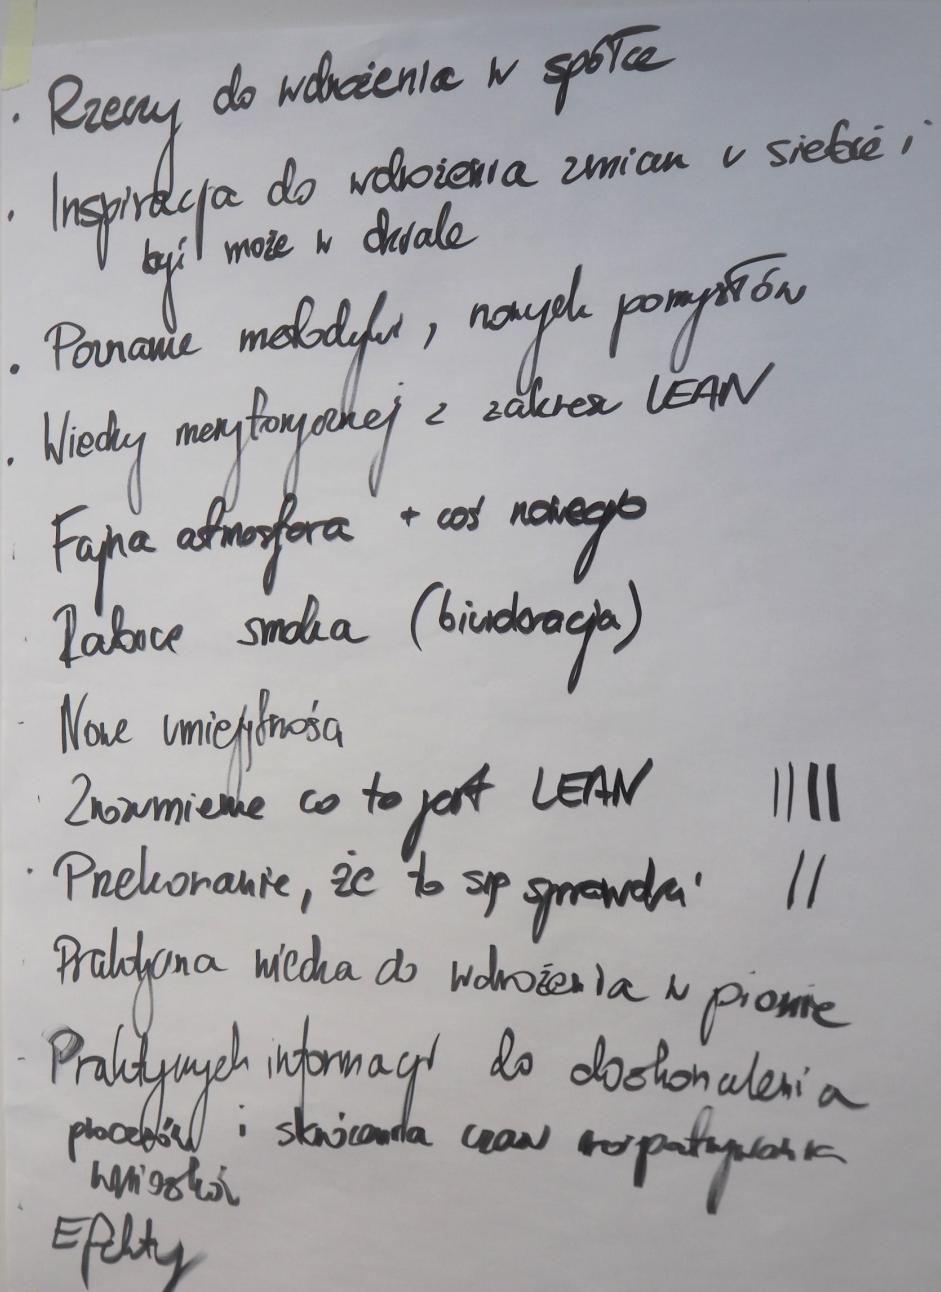 · Rzeczy do wdrożenia w spółce
· Inspiracja do wdrożenia zmian w siebie i
być może w dziale
· Poznanie metodyki, nowych pomysłów
· Wiedzy merytorycznej z zakresu LEAN
Fajna atmosfera + coś nowego
smoka (biurokracja)
- Nowe umiejętności
Zrozumienie co to jest LEAN ||||
· Przekonanie, że to się sprawdzi ||
Praktyczna wiedza do wdrożenia w pionie
- Praktycznych informacji do doskonalenia
procesów i skrócenia czasu rozpatrywania
wniosków
Efekty